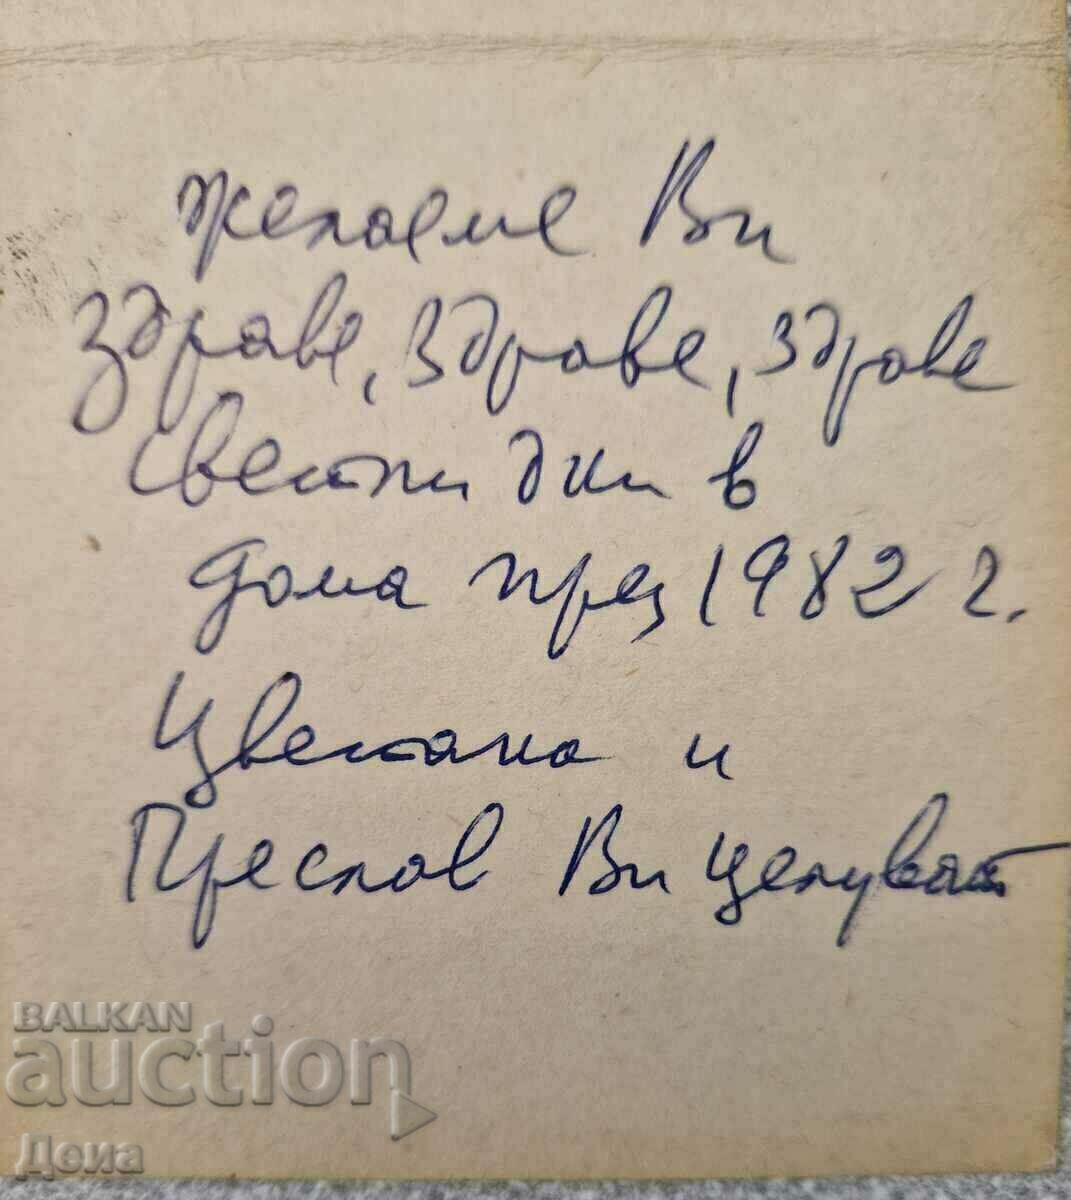 желаеме Ви
здраве, здраве, здраве
светли дни в
дома през 1982 г.
Цветана и
Преслав Ви целуват
BALKAN
auction
Деиа